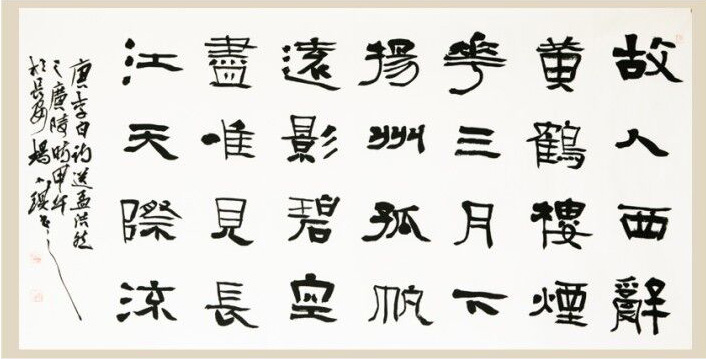 故人西辭
黄鶴樓煙
華三月下
揚州孤帆
遠影碧空
盡唯見長
江天際流
唐李白詩送孟浩然
之廣陵時甲午
於長安楊